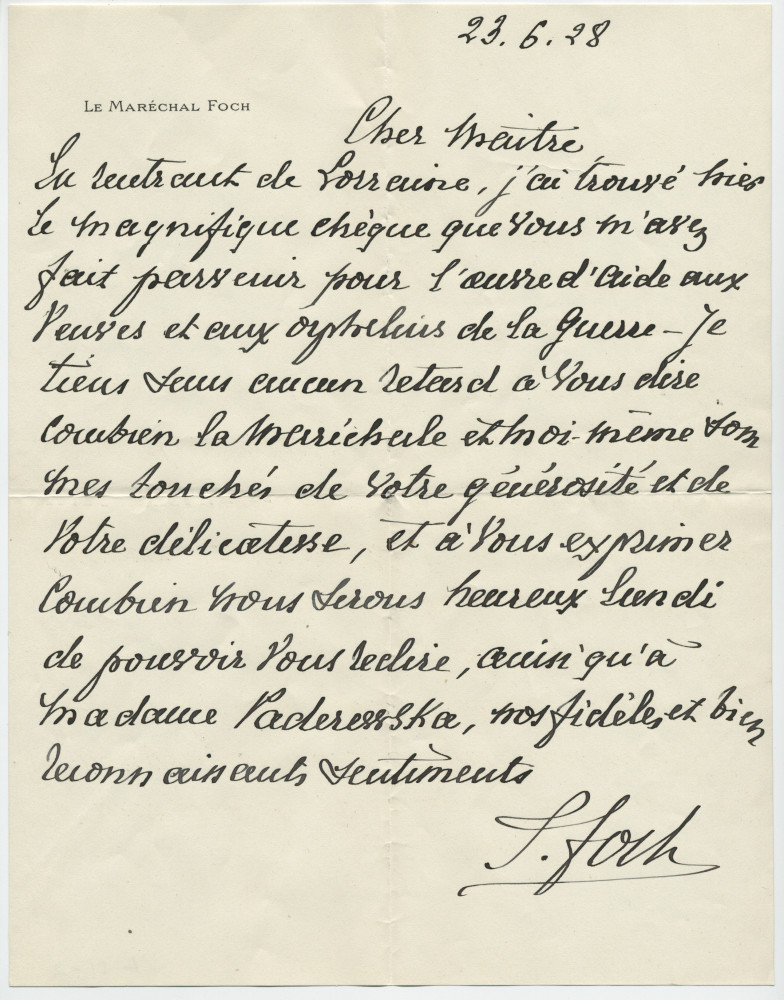 23.6.28
LE MARÉCHAL FOCH
Cher Maître
En rentrant de Lorraine, j'ai trouvé hier
le magnifique chèque que Vous m'avez
fait parvenir pour l'œuvre d'Aide aux
Veuves et aux orphelins de la Guerre – Je
tiens sans aucun retard à Vous dire
Combien la Maréchale et moi-même som
mes touchés de Votre générosité et de
Votre délicatesse, et à Vous exprimer
Combien nous serons heureux Lundi
de pouvoir Vous redire, ainsi qu'à
Madame Paderewska, nos fidèles et bien
reconnaissants sentiments
F. Foch